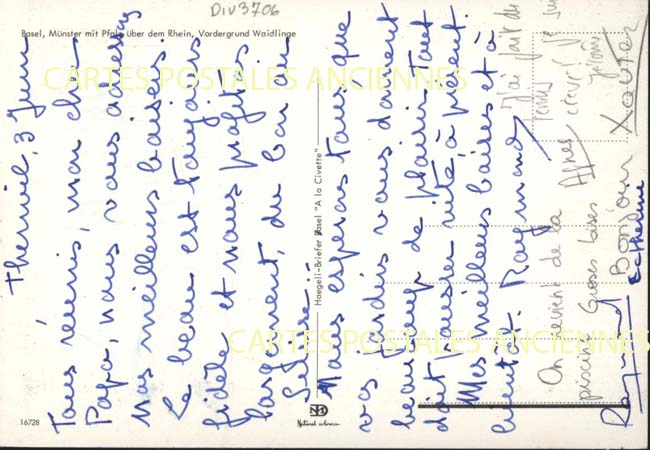 DIV3706
Basel, Münster mit Pfalz über dem Rhein, Vordergrund Waidlinge
CARTES POSTALES ANCIENNES
CARTES POSTALES ANCIENNES
Therwil, 3 Juin
Tous réunis, mon cher
Papa, nous vous adressons
Nos meilleurs baisers.
Le beau est toujours
fidèle et nous profitons
largement, du bon air
Suisse.
Nous espérons tous que
vos jardins vous donnent
beaucoup de plaisir. Tout
doit pousser vite, à présent.
Mes meilleurs baisers et à
bientôt. Raymond
Haegeli-Briefer Basel "A la Civette"
Natural colours
16728
J'ai fait du
tennis
crevé! Je suis
On revient de la
piscine Grosses bises
Raymond
Bonjour
Catherine
Xavier